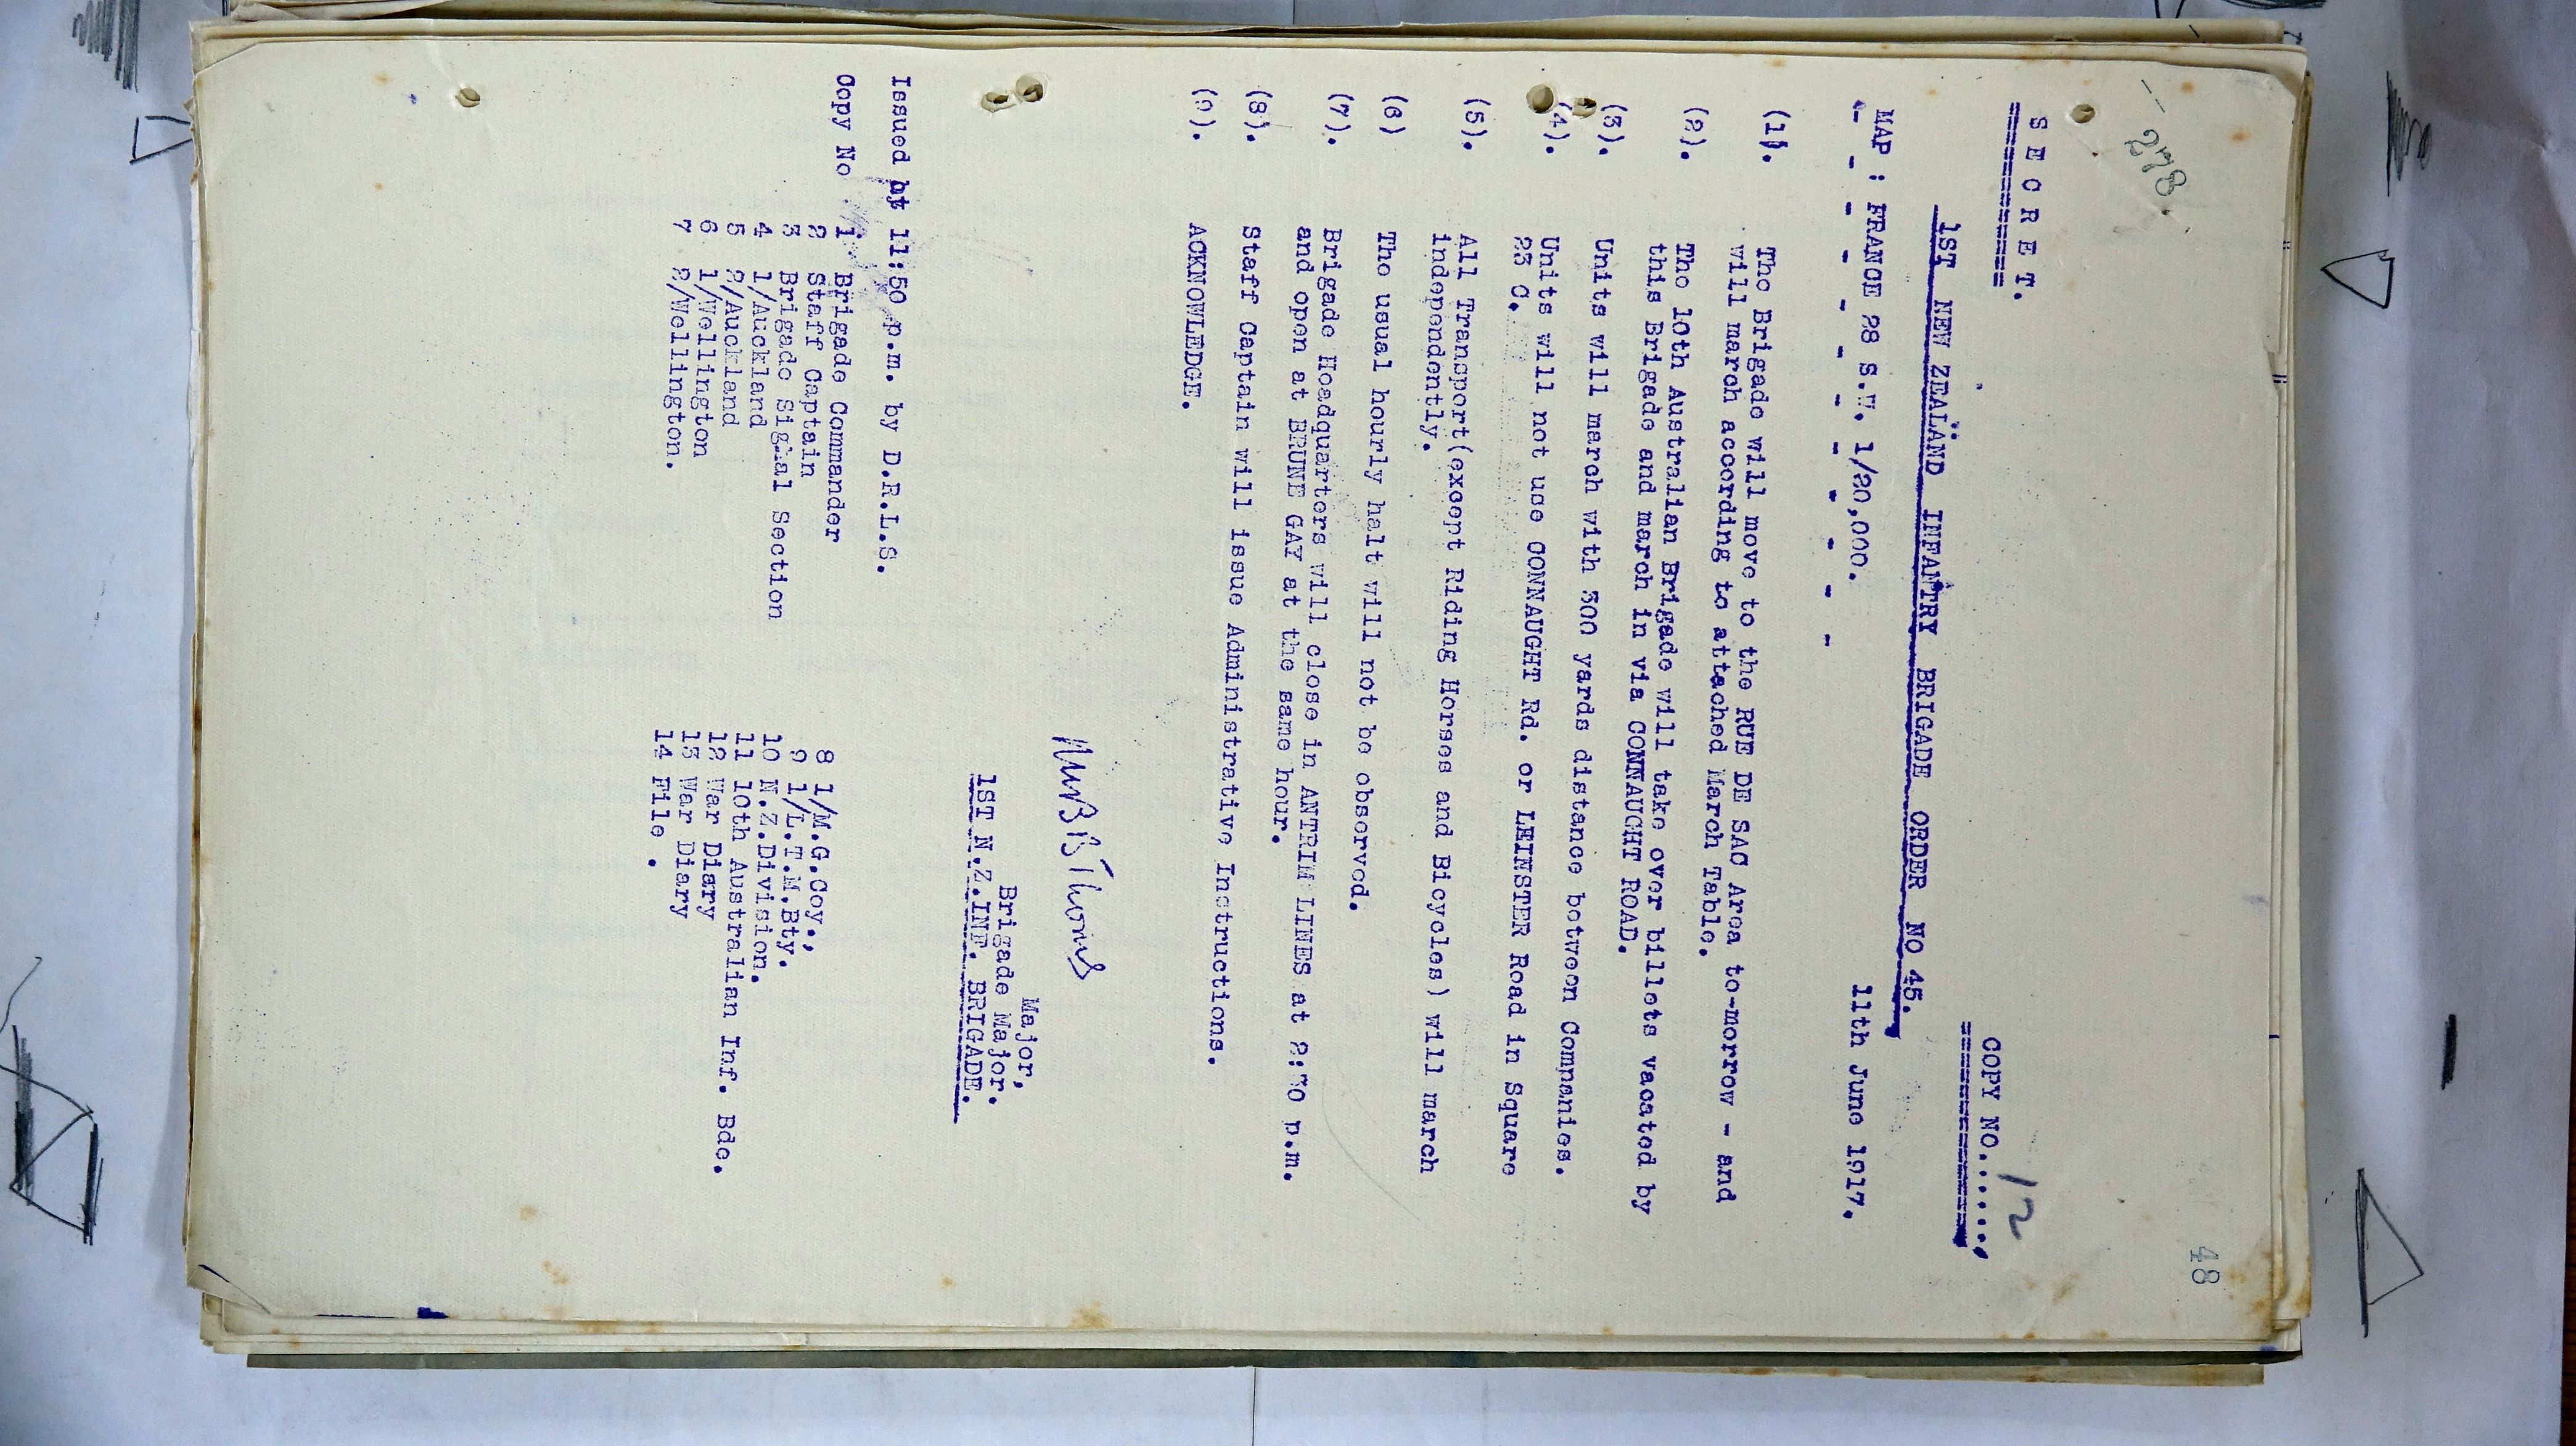 278
48
S E C R E T.
COPY NO.......12
1ST NEW ZEALAND INFANTRY BRIGADE ORDER NO 45.
11th June 1917.
MAP : FRANCE 28 S.W. 1/20,000.
(1). The Brigade will move to the RUE DE SAC Area to-morrow - and
will march according to attached March Table.
(2). The 10th Australian Brigade will take over billets vacated by
this Brigade and march in via CONNAUGHT ROAD.
(3). Units will march with 300 yards distance between Companies.
(4). Units will not use CONNAUGHT Rd. or LEINSTER Road in Square
23 C.
(5). All Transport(except Riding Horses and Bicycles) will march
independently.
(6) The usual hourly halt will not be observed.
(7). Brigade Headquarters will close in ANTRIM LINES at 2:30 p.m.
and open at BRUNE GAY at the same hour.
(8). Staff Captain will issue Administrative Instructions.
(9). ACKNOWLEDGE.
Major,
Brigade Major.
1ST N.Z.INF. BRIGADE.
Issued at 11:50 p.m. by D.R.L.S.
Copy No 1 Brigade Commander
2 Staff Captain
3 Brigade Signal Section
4 1/Auckland
5 2/Auckland
6 1/Wellington
7 2/Wellington.
8 1/M.G.Coy.,
9 1/L.T.M.Bty.
10 N.Z.Division.
11 10th Australian Inf. Bde.
12 War Diary
13 War Diary
14 File .